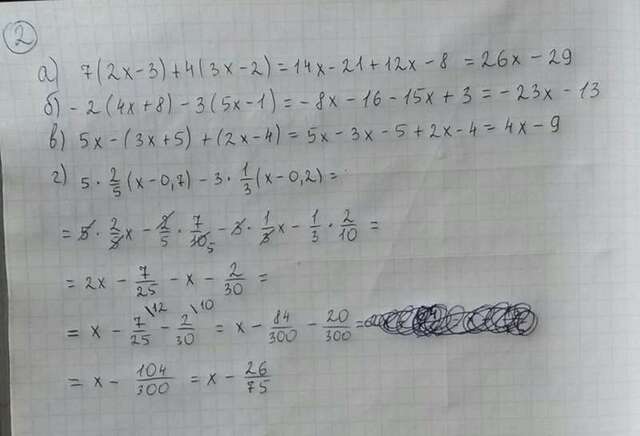 2
а) 7(2x-3)+4(3x-2)=14x-21+12x-8 =26x-29
б) -2(4x+8)-3(5x-1)=-8x-16-15x+3=-23x-13
в) 5x-(3x+5)+(2x-4)=5x-3x-5+2x-4=4x-9
г) 5·2/5(x-0,7)-3·1/3(x-0,2)=
=5·2/5x-2/5·7/10 5-3·1/3x-1/3·2/10=
=2x-7/25-x-2/30=
=x-7/25\12-2/30\10=x-84/300-20/300=
=x-104/300=x-26/75